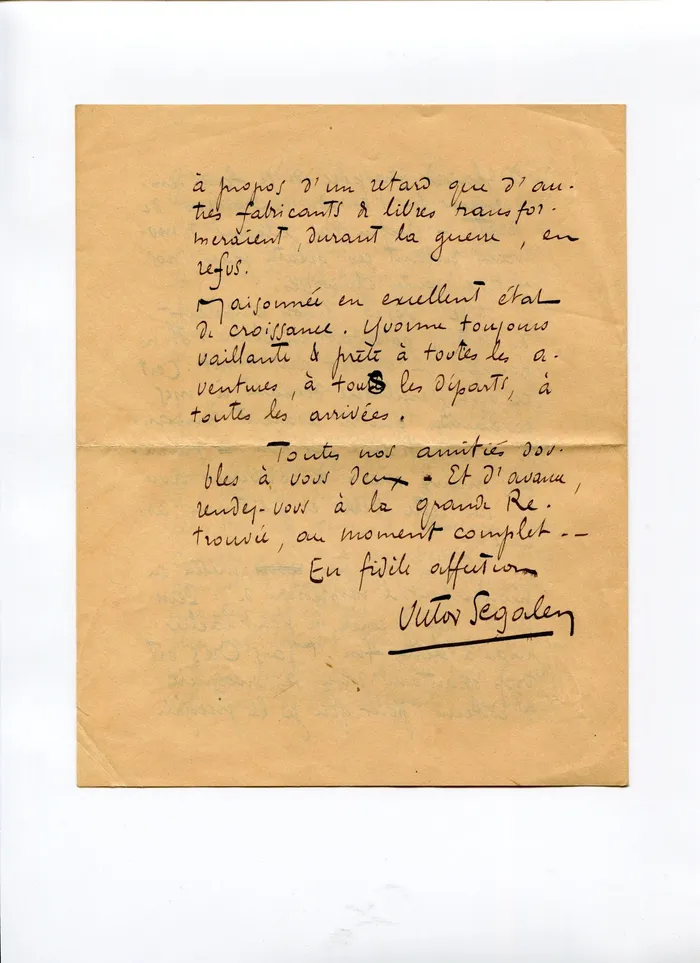 à propos d'un retard que d'au-
tres fabricants de livres transfor-
meraient, durant la guerre, en
refus.
Maisonnée en excellent état
de croissance. Yvonne toujours
vaillante & prête à toutes les a-
ventures, à tous les départs, à
toutes les arrivées.
Toutes nos amitiés dou-
bles à vous deux - Et d'avance,
rendez-vous à la grande Re-
trouvée, au moment complet --
En fidèle affection
Victor Segalen